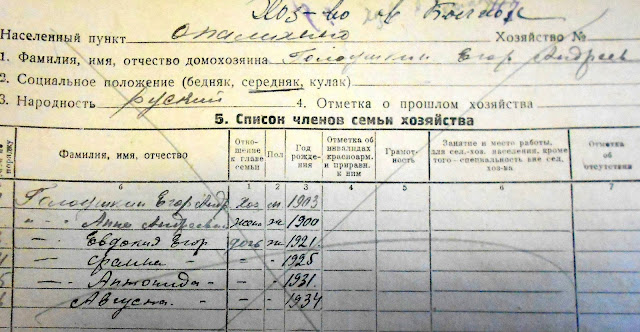 Хоз-во
Населенный пункт Опалихино Хозяйство №
1. Фамилия, имя, отчество домохозяина Голоушкин Егор Андреев
2. Социальное положение (бедняк, середняк, кулак)
3. Народность русский 4. Отметка о прошлом хозяйства
5. Список членов семьи хозяйства
порядку Фамилия, имя, отчество Отношение к главе семьи Пол Год рождения Отметка об инвалидах красноарм. и приравн. к ним Грамотность Занятие и место работы, для сел.-хоз. населения, кроме того - специальность вне сел. хоз-ва Отметка об отсутствии
6 1 2 3 4 5 6 7
Голоушкин Егор Андр Хоз м. 1903
-"- Анна Андреевна жена ж 1900
- Евдокия Егор дочь ж 1921
- - - - 1925
- Антонида - - - 1931
Августа - - - 1934